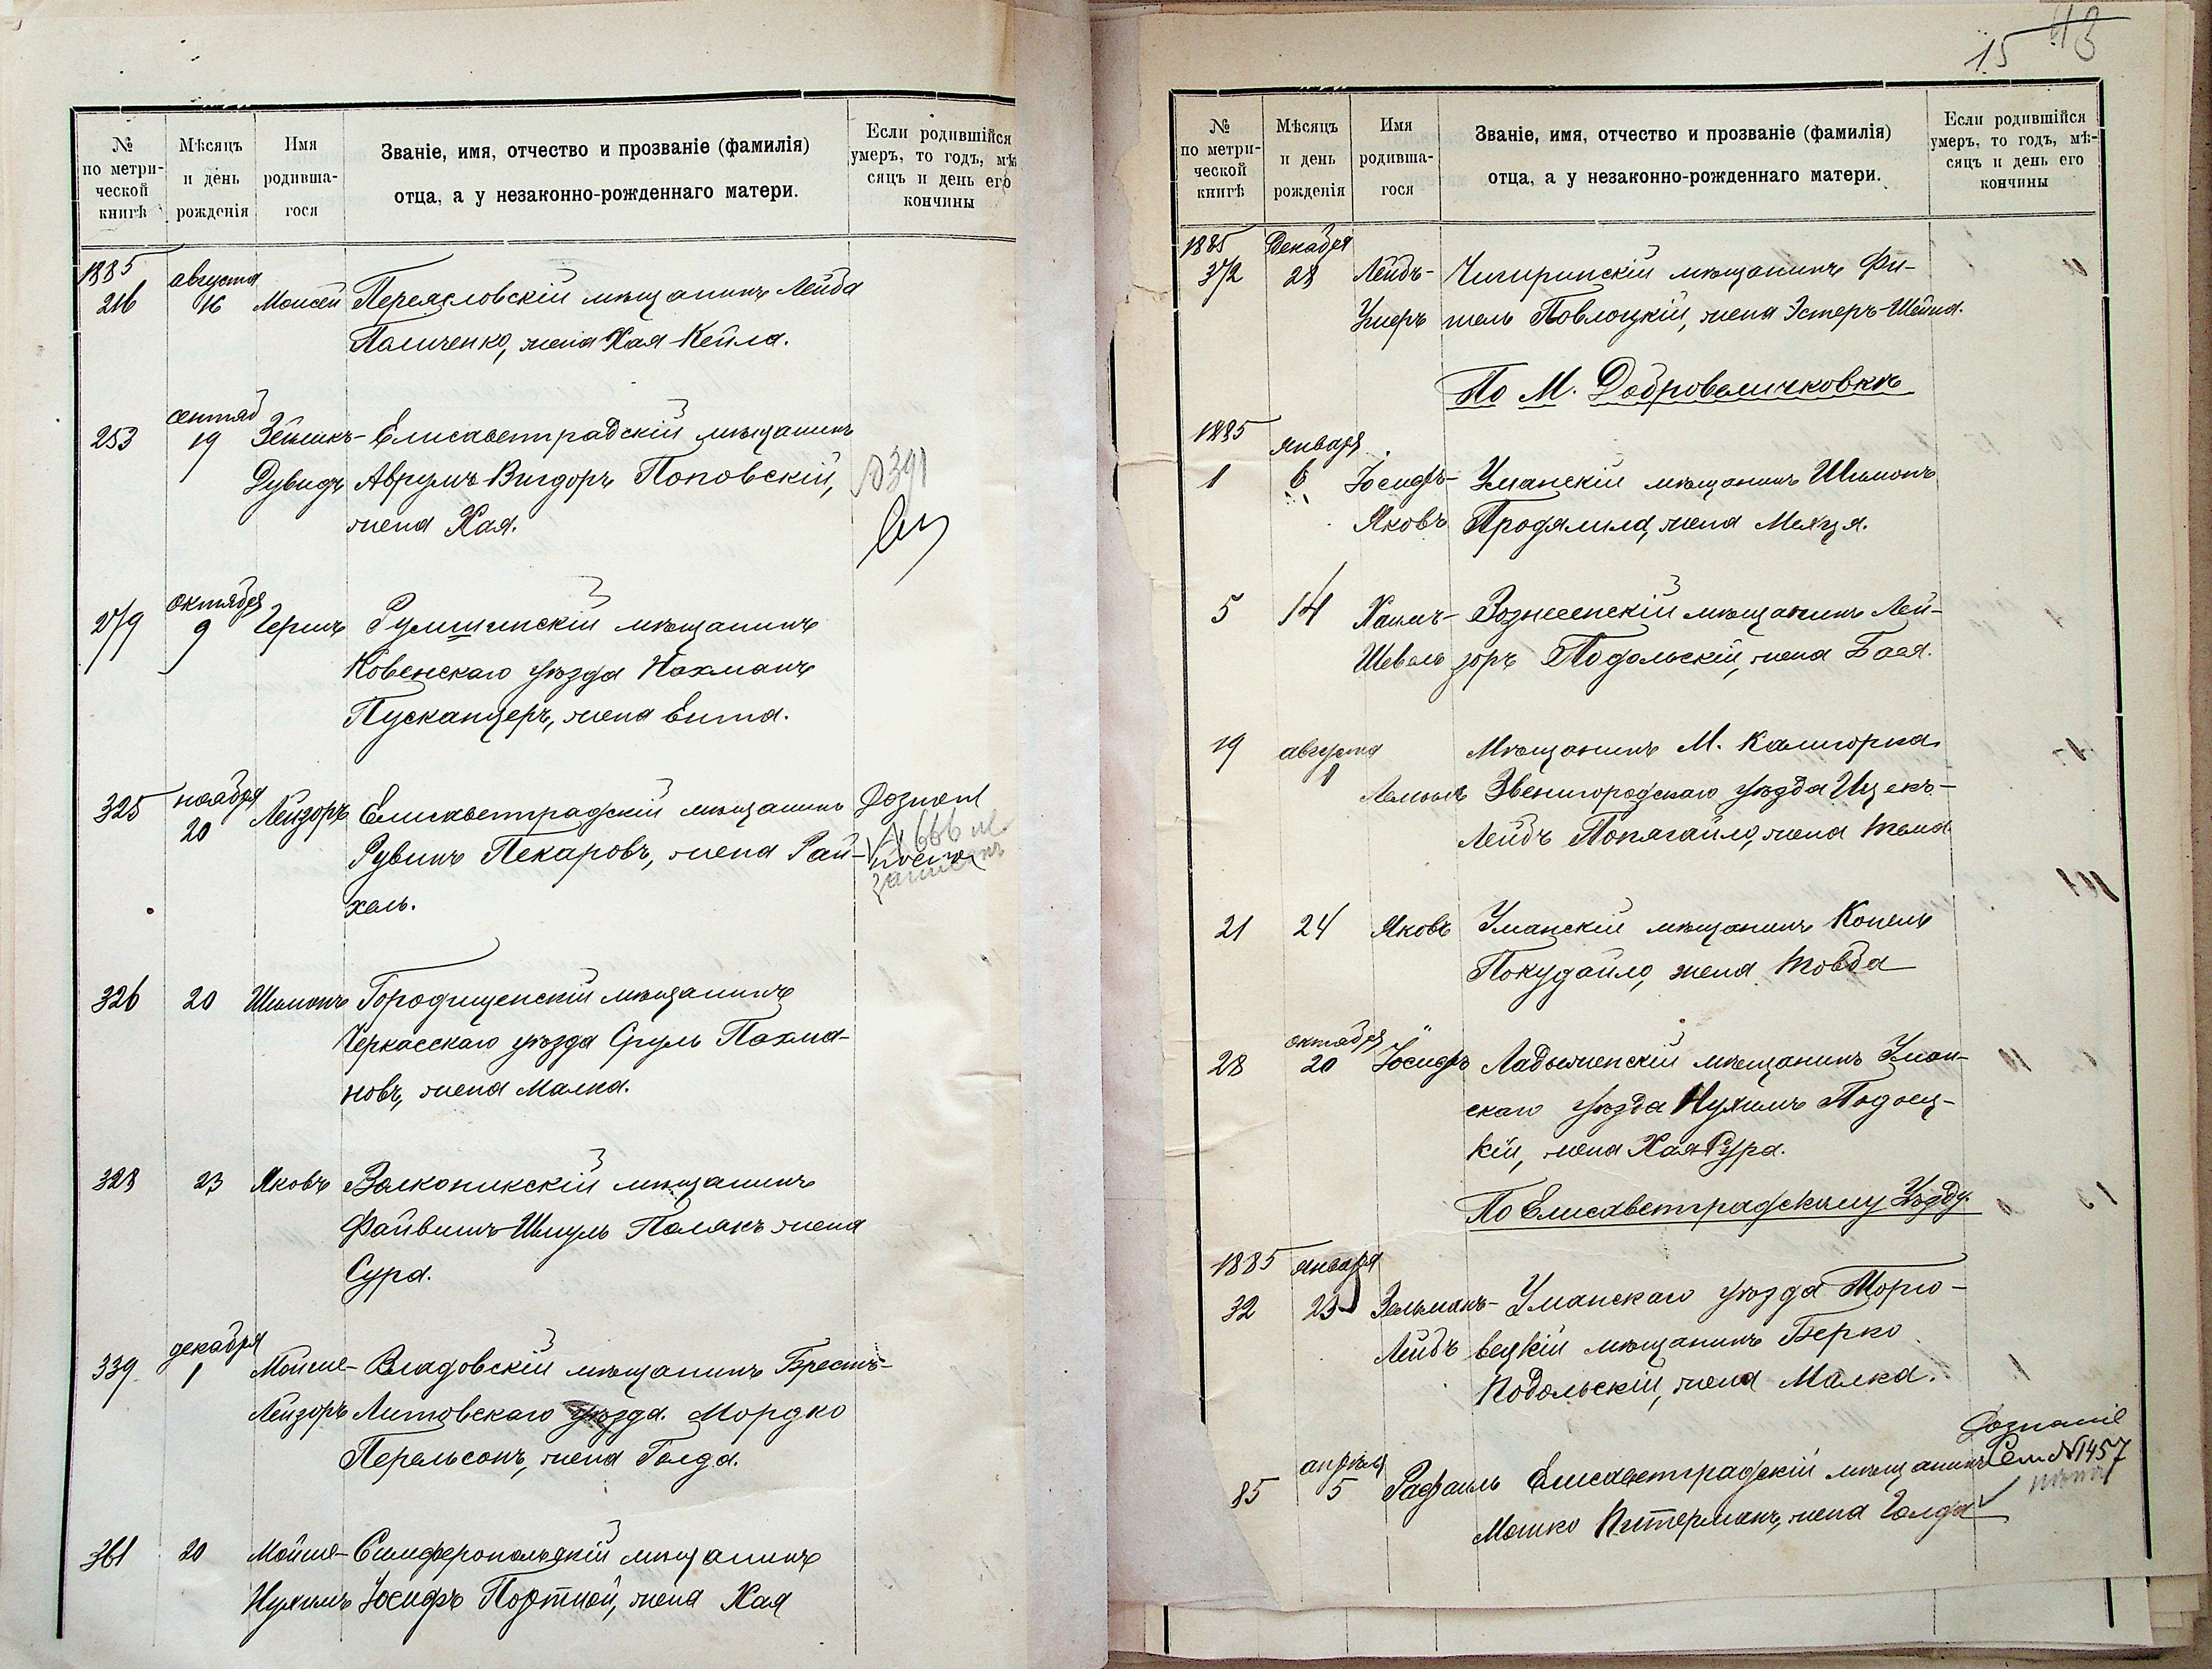 № по метри-ческой книгѣ
Мѣсяцъ и день рожденія
Имя родивша-гося
Званіе, имя, отчество и прозваніе (фамилія)
отца, а у незаконно-рожденнаго матери.
Если родившійся
умеръ, то годъ, мѣ
сяцъ и день его
кончины
1885 августа
216 16 Моисей Переясловскій мѣщанинъ Лейба
Паличенко, жена Хая-Кейла.
сентяб
253 19 Зейликъ- Елисаветградскій мѣщанинъ
Дувидъ Аврумъ-Вигдоръ Поповскій,
жена Хая.
№391
октября
279 9 Гершъ Румшишскій мѣщанинъ
Ковенскаго уѣзда Нахманъ
Пускансцеръ, жена Ента.
ноября
325 20 Лейзоръ Елисаветградскій мѣщанинъ
Рувинъ Пекаровъ, жена Рай-
хель.
326 20 Шимонъ Городищенскій мѣщанинъ
Черкасскаго уѣзда Сруль Пахма-
новъ, жена Малка.
328 23 Яковъ Волконикскій мѣщанинъ
Файвишъ-Шмуль Полякъ жена
Сура.
декабря
339 1 Мойше- Владовскій мѣщанинъ Брестъ-
Лейзоръ Литовскаго уѣзда. Мордко
Перельсонъ, жена Голда.
361 20 Мойше- Симферопольскій мѣщанинъ
Нухимъ Іосифъ Портной, жена Хая
15 43
№ по метри-ческой книгѣ
Мѣсяцъ и день рожденія
Имя родивша-гося
Званіе, имя, отчество и прозваніе (фамилія)
отца, а у незаконно-рожденнаго матери.
Если родившійся
умеръ, то годъ, мѣ-
сяцъ и день его
кончины
1885 Декабря
372 28 Лейбъ- Чигиринскій мѣщанинъ Фи-
Умеръ тель Повлоцкій, жена Эстеръ-Шейна.
По М. Добровеличковкѣ
1885 января
1 6 Іосифъ- Уманскій мѣщанинъ Шимонъ
Яковъ Продялила, жена Меяця.
5 14 Хаимъ- Вознесенскій мѣщанинъ Лей-
Шевель зоръ Подольскій, жена Бася.
19 августа Мѣщанинъ М. Калигорка
1 Звенигородскаго уѣзда Ицекъ-
Лейбъ Попягайло, жена Тема
21 24 Яковъ Уманскій мѣщанинъ Копель
Покудайло, жена Товба
октября
28 20 Іосифъ Ладыженскій мѣщанинъ Уман-
скаго уѣзда Нухимъ Подоец-
кій, жена Хая Сура.
По Елисаветградскому Уѣзду.
1885 января
32 23 Зельманъ- Уманскаго уѣзда Торго-
Лейбъ вецкій мѣщанинъ Берко
Подольскій, жена Малка.
апрѣля Дознаніе
85 5 Рафаиль Елисаветградскій мѣщанинъ Сем №1457
Мошко Питерманъ, жена Голда